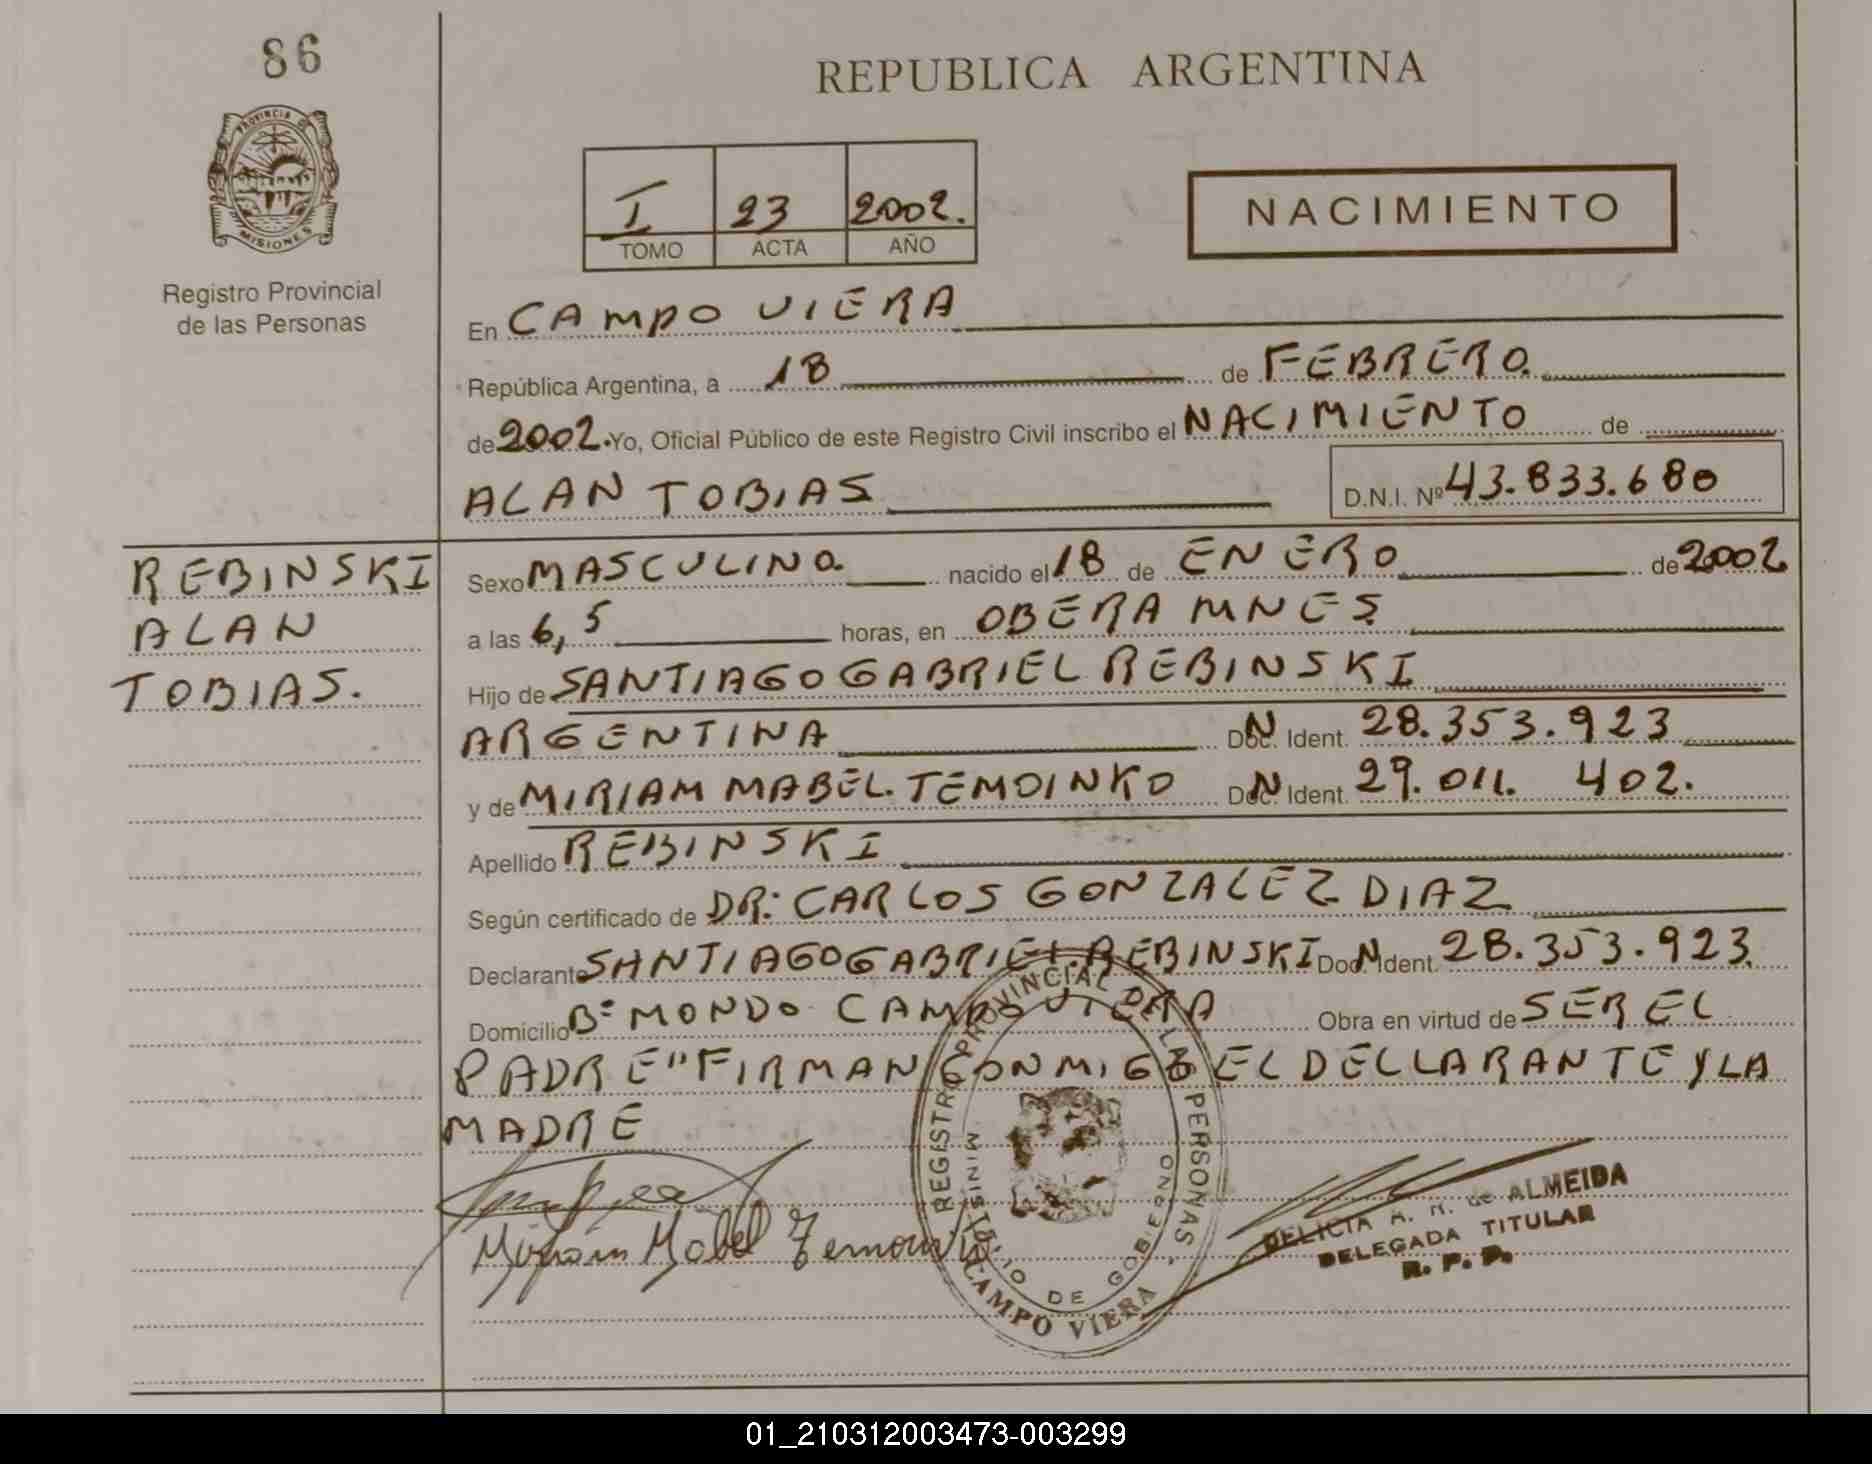 86
REPUBLICA ARGENTINA
PROVINCIA DE
MISIONES
Registro Provincial
de las Personas
I 23 2002.
TOMO ACTA AÑO
NACIMIENTO
En CAMPO VIERA
República Argentina, a 18 de FEBRERO.
de 2002. Yo, Oficial Público de este Registro Civil inscribo el NACIMIENTO de
ALAN TOBIAS D.N.I. Nº 43.833.680
REBINSKI
ALAN
TOBIAS.
Sexo MASCULINO. nacido el 18 de ENERO de 2002
a las 6,5 horas, en OBERA MNES.
Hijo de SANTIAGO GABRIEL REBINSKI
ARGENTINA Doc. N Ident. 28.353.923
y de MIRIAM MABEL. TEMOINKO Doc. N Ident. 29.011.402.
Apellido REBINSKI
Según certificado de DR: CARLOS GONZALEZ DIAZ
Declarante SANTIAGO GABRIEL REBINSKI Doc. N Ident. 28.353.923.
Domicilio Bº MONDO CAMPO VIERA Obra en virtud de SER EL
PADRE" FIRMAN CONMIGO EL DELLARANTE Y LA
MADRE
Miriam Mabel
REGISTRO PROVINCIAL LAS PERSONAS
MINISTERIO DE GOBIERNO
CAMPO VIERA
DELICIA A. de ALMEIDA
DELEGADA TITULAR
R. P. P.
01_210312003473-003299